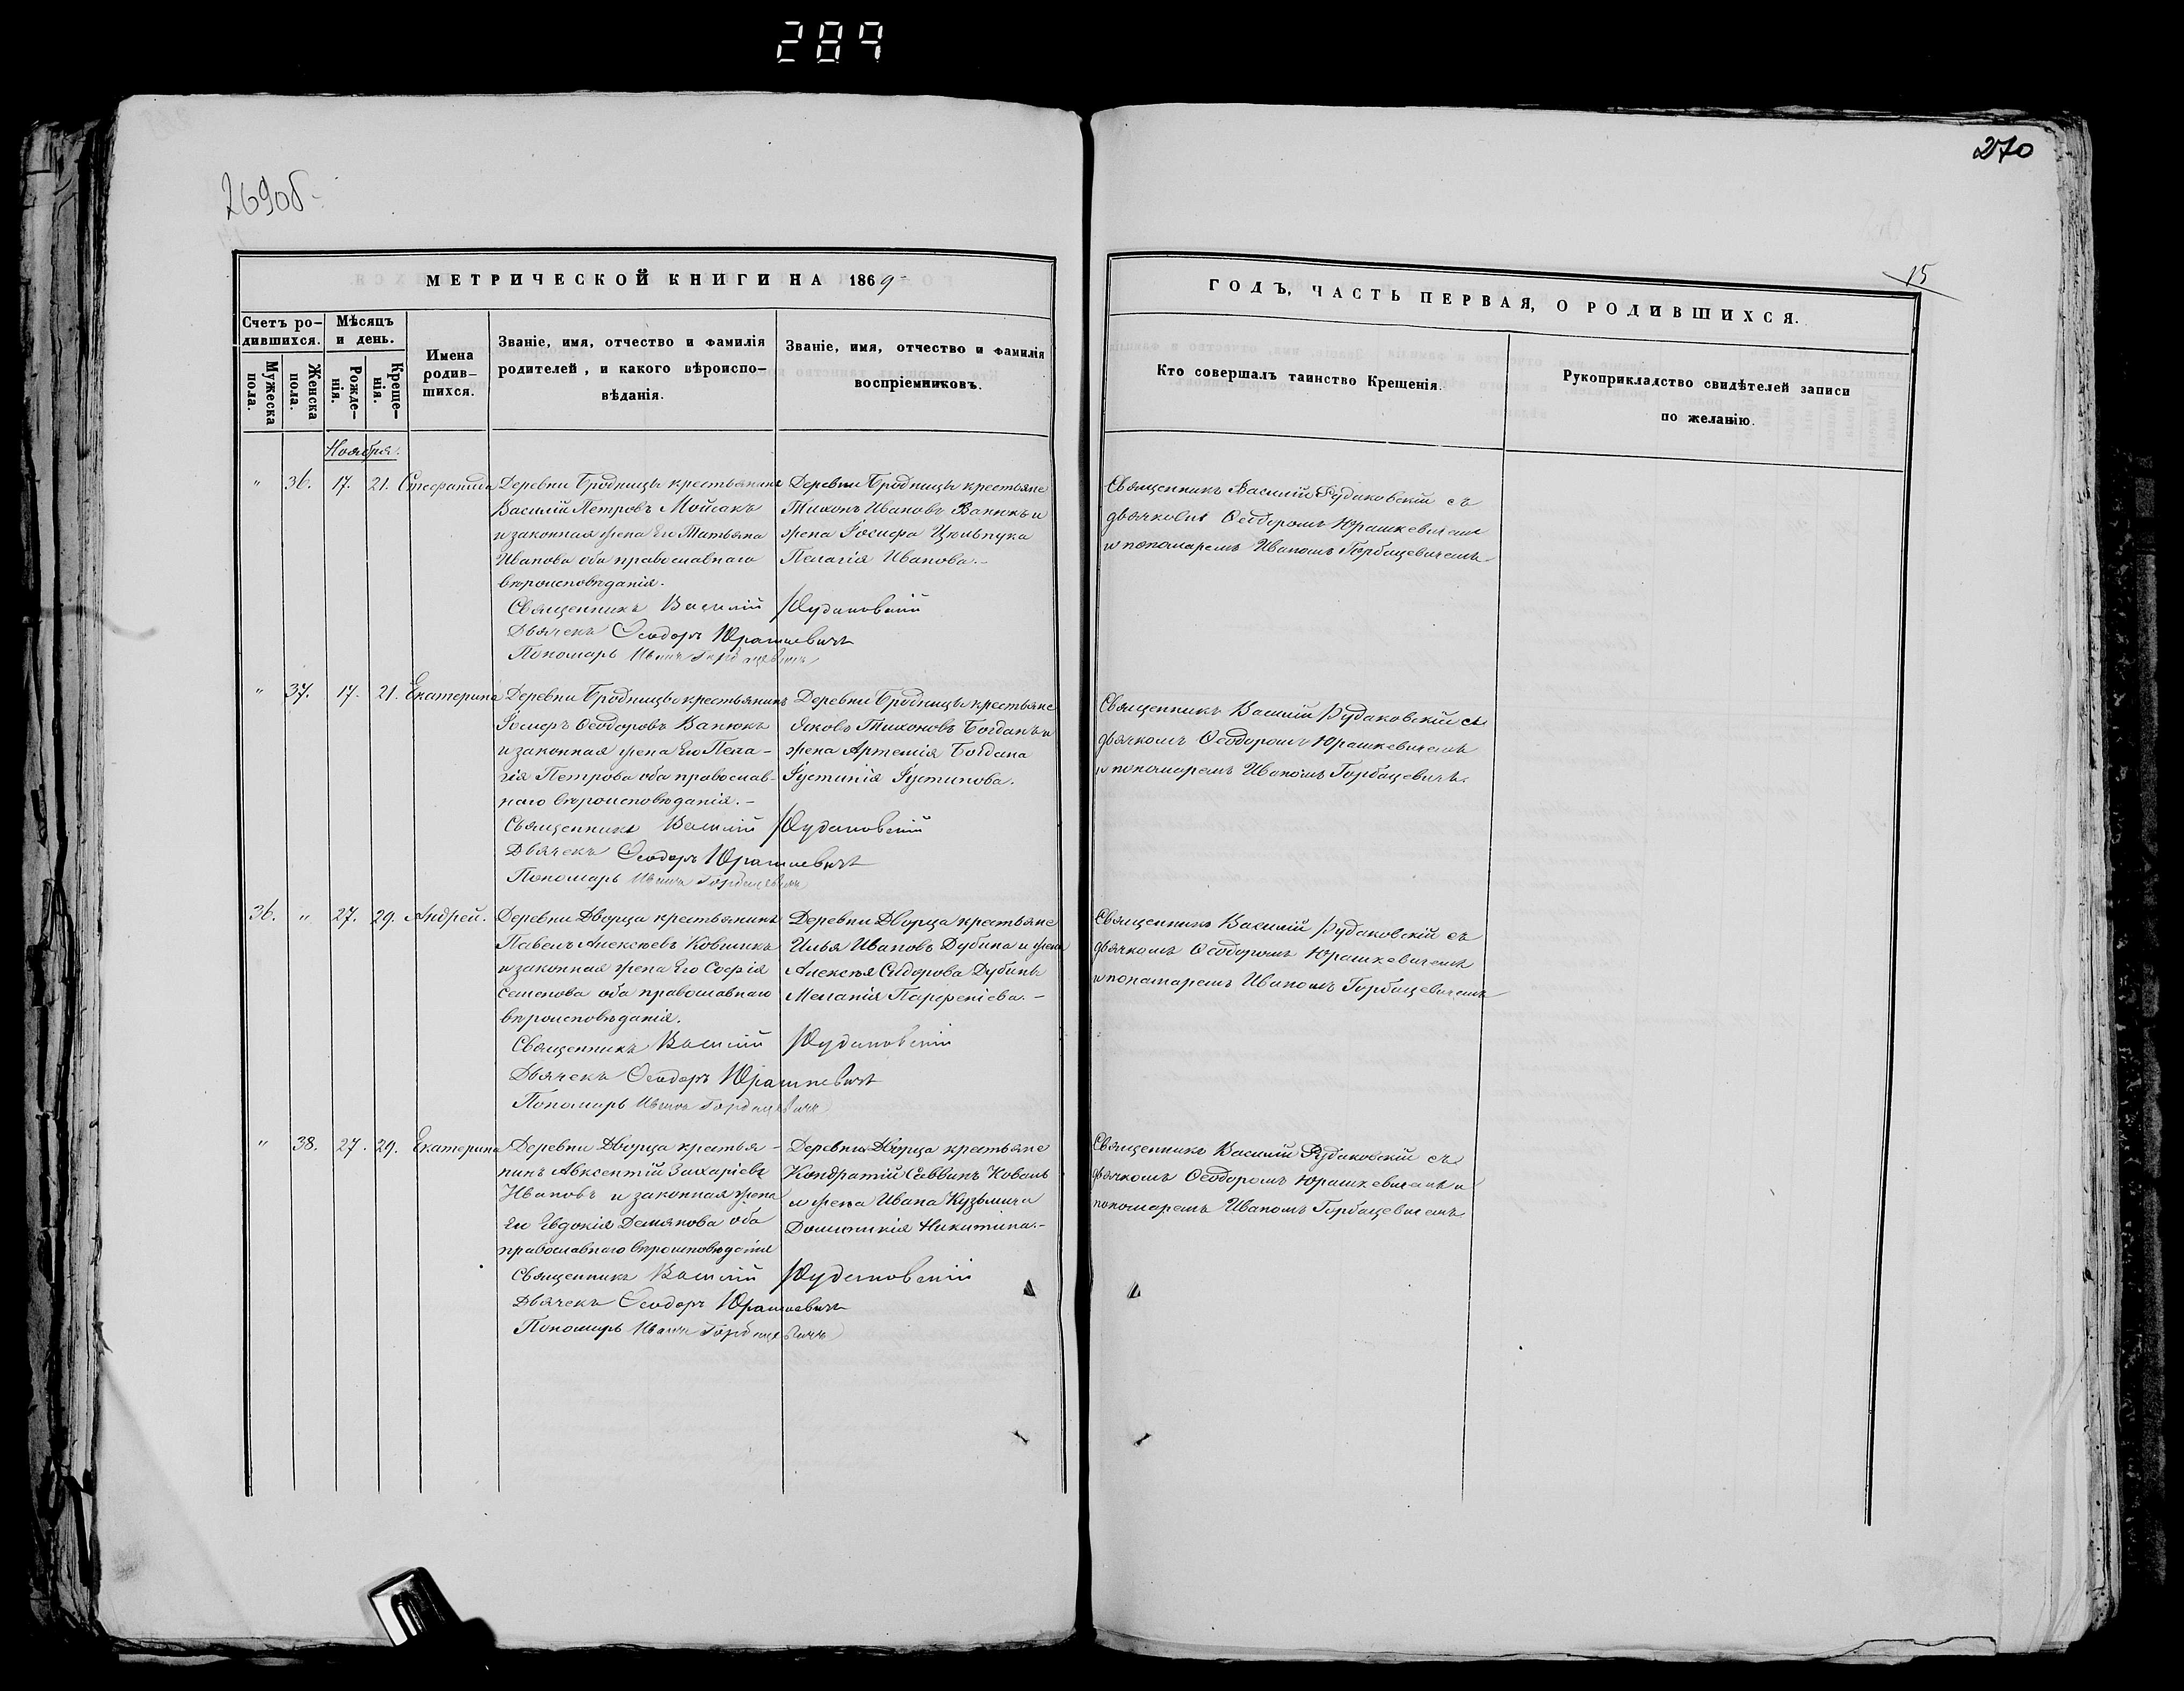 289
269об.
270
15
МЕТРИЧЕСКОЙ КНИГИ НА 1869
ГОДЪ, ЧАСТЬ ПЕРВАЯ, О РОДИВШИХСЯ.
Счетъ ро-
дившихся.
Мужеска
пола.
Женска
пола.
Мѣсяцъ
и день.
Рожде-
нія.
Креще-
нія.
Имена
родив-
шихся.
Званіе, имя, отчество и фамилія
родителей, и какого вѣроиспо-
вѣданія.
Званіе, имя, отчество и фамилія
воспріемниковъ.
Кто совершалъ таинство Крещенія.
Рукоприкладство свидѣтелей записи
по желанію.
Ноября.
" 36. 17. 21. Стефанида
Деревни Бродницы крестьянинъ
Василій Петровъ Мойсакъ
и законная жена Его Татьяна
Иванова оба православнаго
вѣроисповѣданія.
Деревни Бродницы крестьяне
Тихонъ Ивановъ Ванюкъ и
жена Іосифа Цюльпука
Пелагія Иванова.-
Священникъ Василій Рудаковскій
Дьячекъ Ѳеодоръ Юрашкевичъ
Пономарь Иванъ Горбацевичъ
Священникъ Василій Рудаковскій съ
дьячкомъ Ѳеодоромъ Юрашкевичемъ
и пономаремъ Иваномъ Горбацевичемъ.
" 37. 17. 21. Екатерина
Деревни Бродницы крестьянинъ
Іосифъ Ѳеодоровъ Ванюкъ
и законная жена Его Пела-
гія Петрова оба православ-
наго вѣроисповѣданія.-
Деревни Бродницы крестьяне
Яковъ Тихоновъ Богданъ и
жена Артемія Богдана
Іустинія Іустинова.
Священникъ Василій Рудаковскій
Дьячекъ Ѳеодоръ Юрашкевичъ
Пономарь Иванъ Горбацевичъ
Священникъ Василій Рудаковскій съ
дьячкомъ Ѳеодоромъ Юрашкевичемъ
и пономаремъ Иваномъ Горбацевичъ.
36. " 27. 29. Андрей.
Деревни Дворца крестьянинъ
Павелъ Алексѣевъ Ковшикъ
и законная жена Его Софія
Семенова оба православнаго
вѣроисповѣданія.
Деревни Дворца крестьяне
Илья Ивановъ Дубина и жена
Алексѣя Сидорова Дубины
Меланія Парфеніева.-
Священникъ Василій Рудаковскій
Дьячекъ Ѳеодоръ Юрашкевичъ
Пономарь Иванъ Горбацевичъ
Священникъ Василій Рудаковскій съ
дьячкомъ Ѳеодоромъ Юрашкевичемъ
и понамаремъ Иваномъ Горбацевичемъ
" 38. 27. 29. Екатерина
Деревни Дворца крестья-
нинъ Авксентій Захаріевъ
Ивановъ и законная жена
Его Евдокія Демянова оба
православнаго вѣроисповѣданія
Деревни Дворца крестьяне
Кондратій Саввинъ Коваль
и жена Ивана Кузьмича
Домникія Никитина.-
Священникъ Василій Рудаковскій
Дьячекъ Ѳеодоръ Юрашкевичъ
Пономарь Иванъ Горбацевичъ
Священникъ Василій Рудаковскій съ
дьячкомъ Ѳеодоромъ Юрашкевичемъ и
пономаремъ Иваномъ Горбацевичемъ